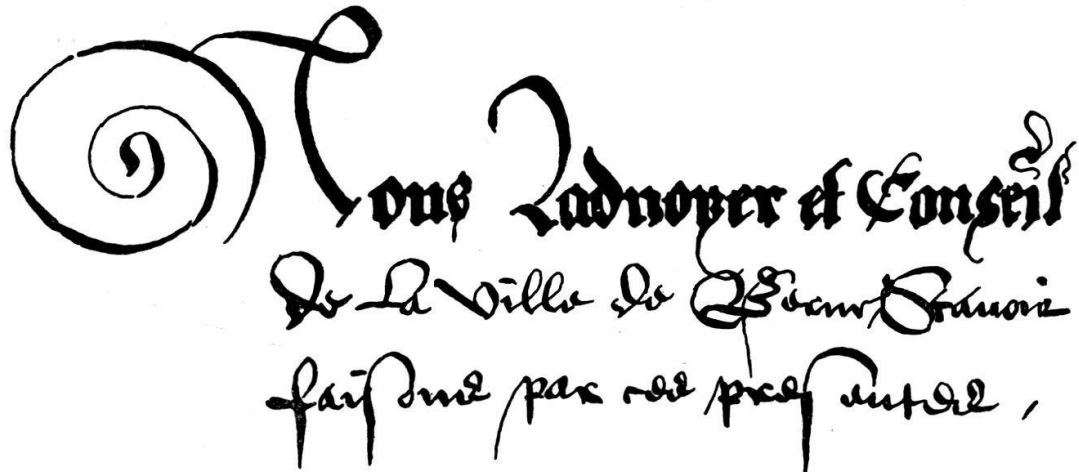 Nous Laduoyer et Conseil
de La Ville de Berne, Scauoir
faisons par ces presentes,